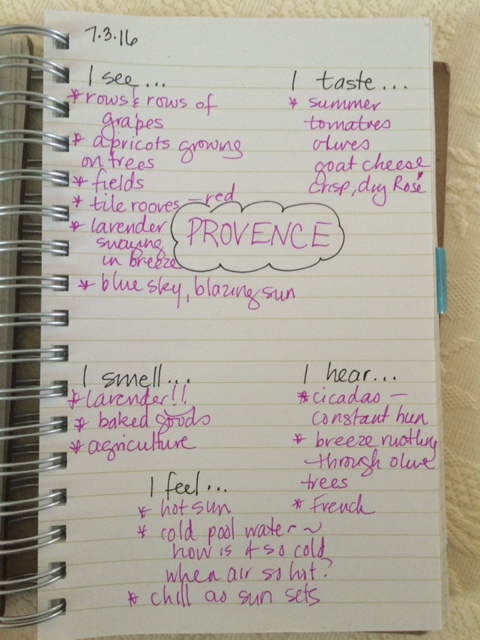 7.3.16
I see...
* rows & rows of
grapes
* apricots growing
on trees
* fields
* tile rooves - red
* lavender
swaying
in breeze
* blue sky, blazing sun
I taste...
* summer
tomatoes
olives
goat cheese
crisp, dry Rosé
PROVENCE
I smell...
* lavender!!
* baked goods
* agriculture
I hear...
* cicadas -
constant hum
* breeze rustling
through olive
trees
* French
I feel...
* hot sun
* cold pool water ~
how is it so cold
when air so hot?
* chill as sun sets